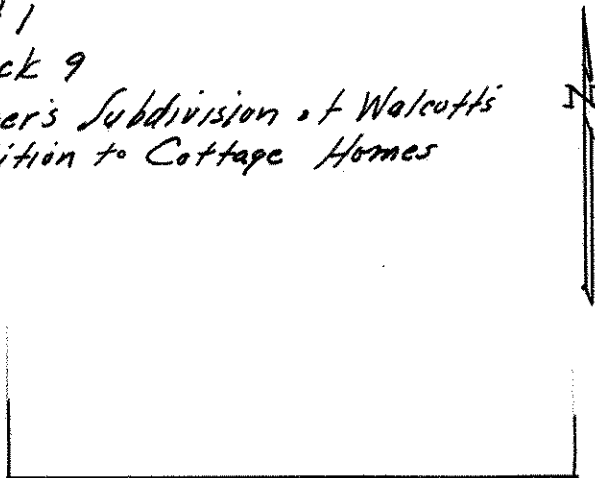 1
ck 9
er's Subdivision of Walcutt's
ition to Cottage Homes
N